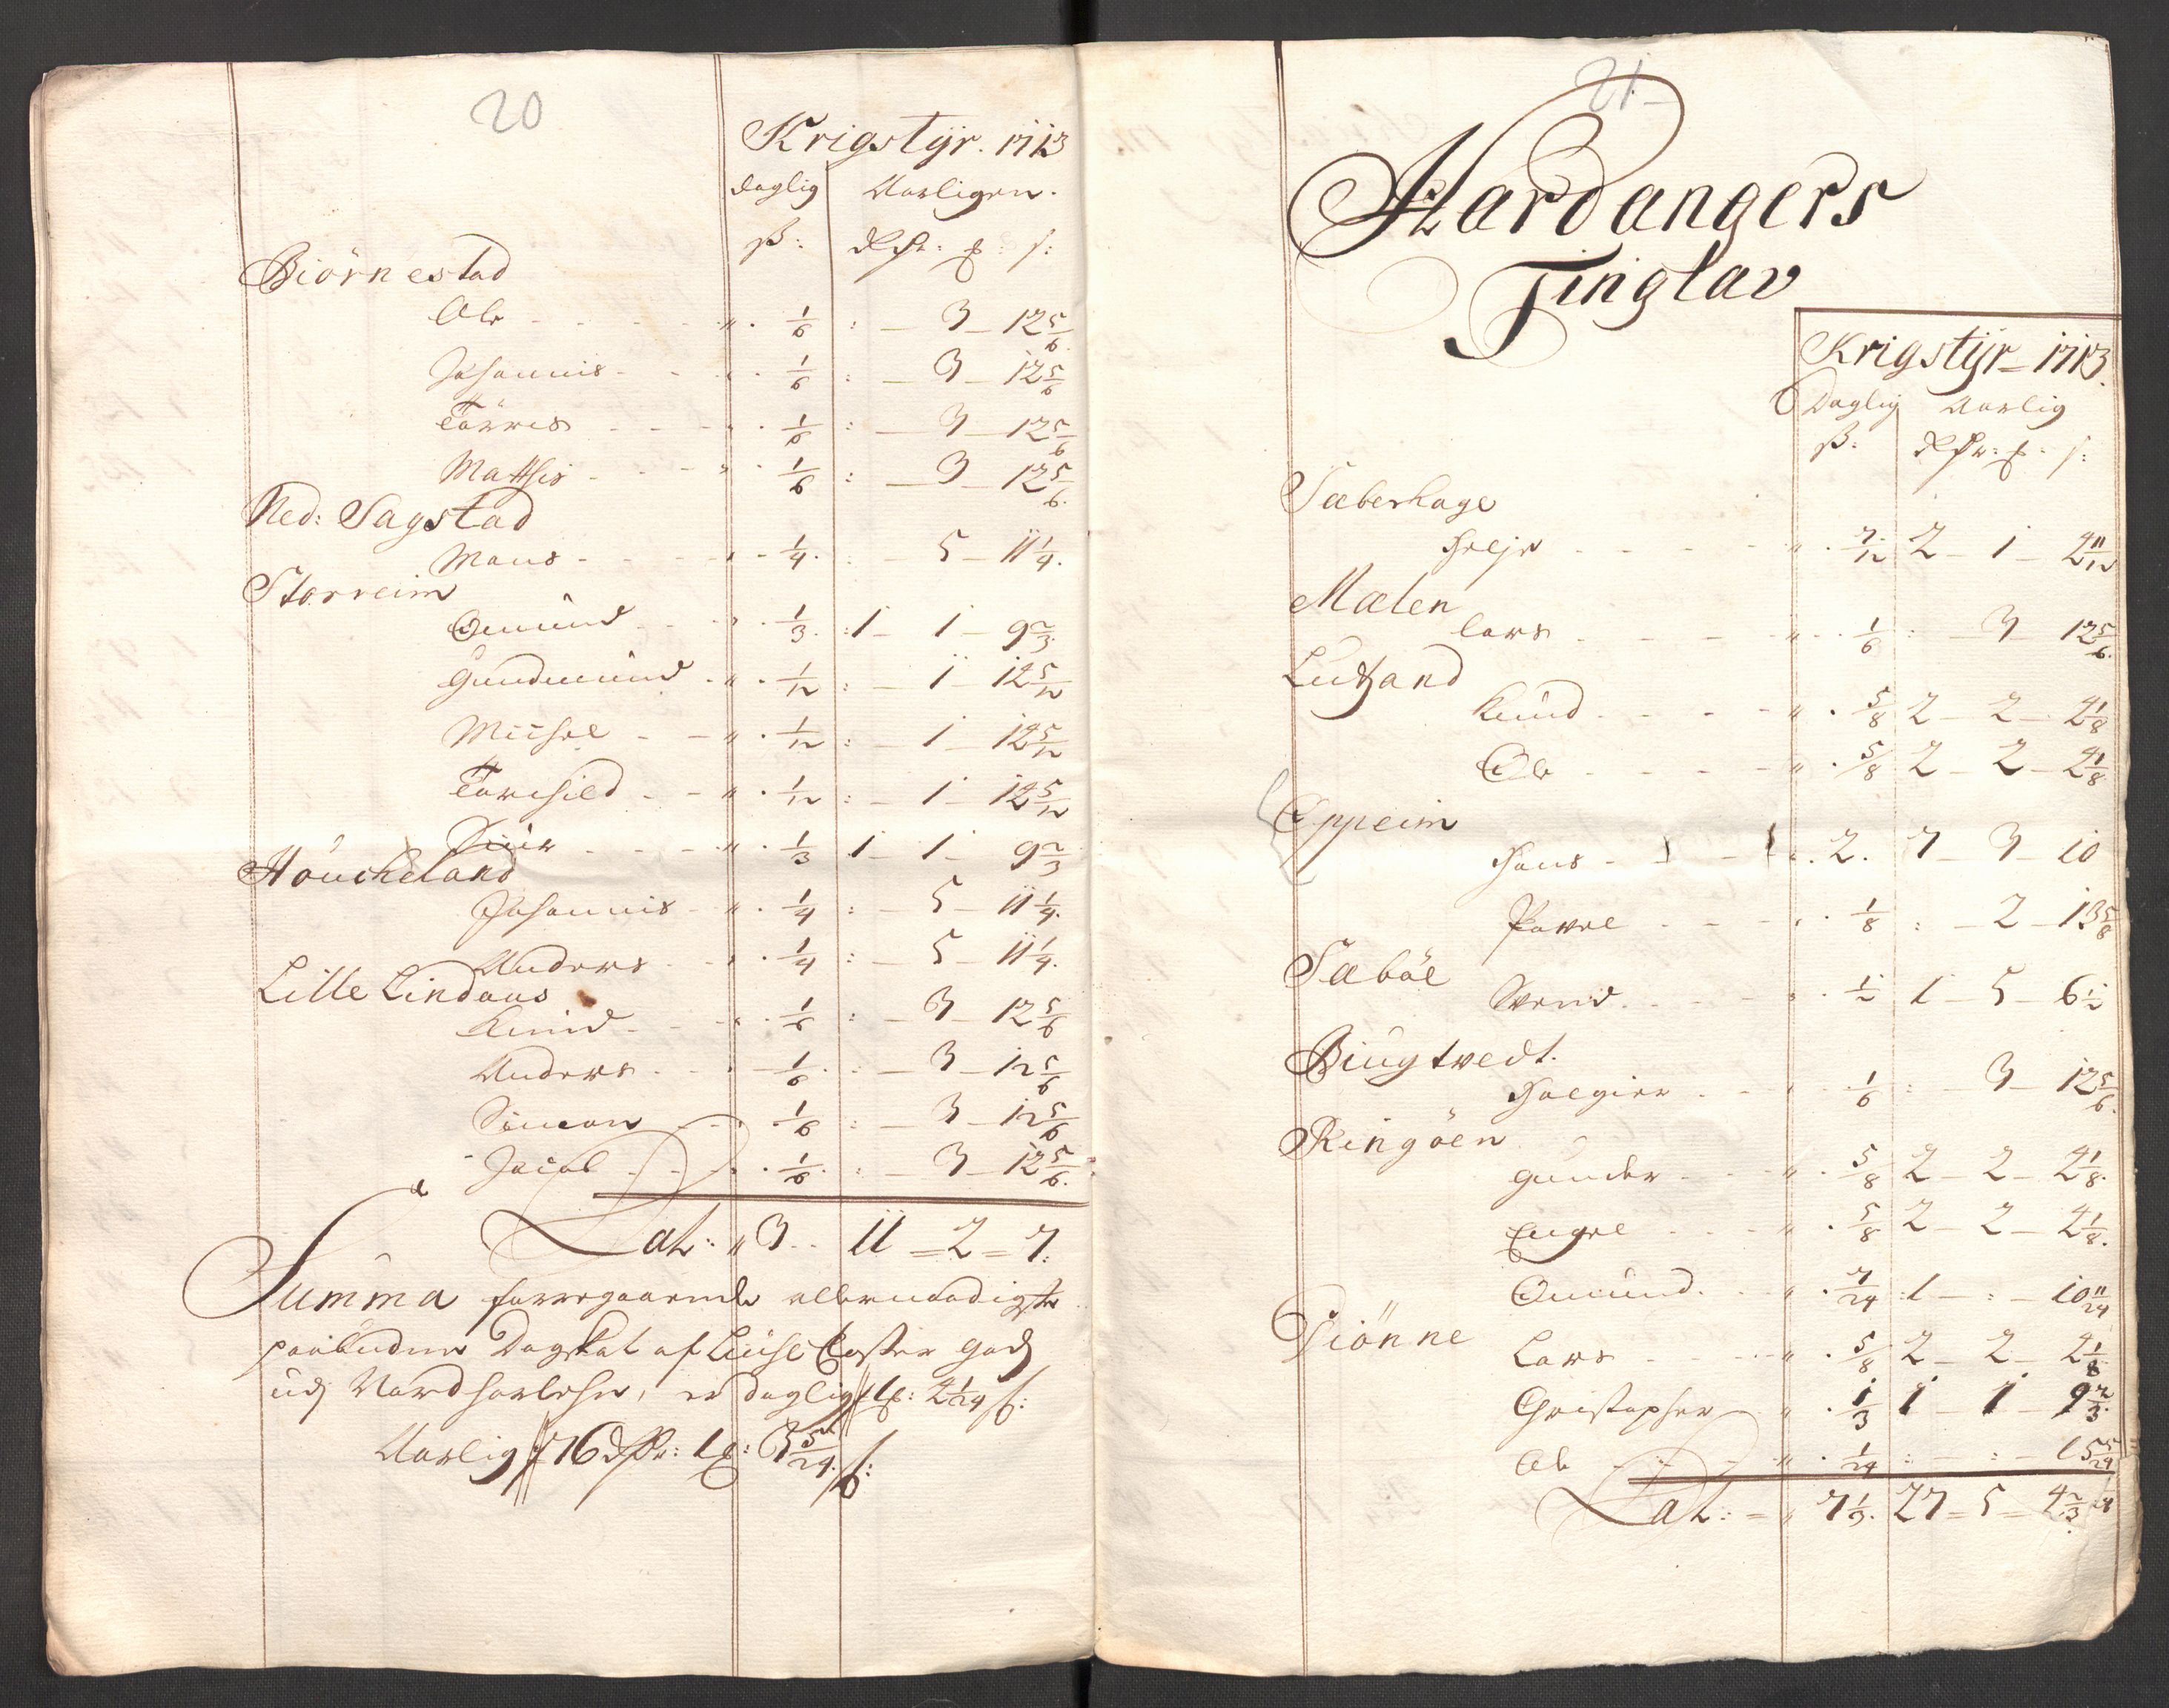 20
Krigstÿr. 1713
daglig Aarligen.
ß: dlr: ₰: s:
Biörnestad
Ole - - - " . 1/6 : - 3 - 12 5/6
Johannis - - . 1/6 : - 3 - 12 5/6
Törris - - - . 1/6 : - 3 - 12 5/6
Matthis - - - " . 1/6 : - 3 - 12 5/6.
Ned: Sagstad
Mons - - - . 1/4. : - 5 - 11 1/4.
Storreim
Omund - - . 1/3. :1 - 1 - 9 2/3.
Gundmund . " . 1/12 : - 1 - 12 5/12
Michel - - " . 1/12 : - 1 - 12 5/12
Torchild - - " . 1/12 : - 1 - 12 5/12
Siur - - - " . 1/3 1 - 1 - 9 2/3
Houcheland
Johannis - " . 1/4 : - 5 - 11 1/4.
Anders - - . 1/4 : - 5 - 11 1/4.
Lille Lindaas
Knud - - - . 1/6 : - 3 - 12 5/6
Anders - - - 1/6. : - 3 - 12 5/6
Simon - - . 1/6 : - 3 - 12 5/6
Jacob - - . 1/6. : - 3 - 12 5/6.
Lat: " 3 - 11 = 2 = 7:
Summa forregaaende allernaadigste
paabudne Dagskat af Liuse Closter gods
udj Nordhorlehn, er daglig 1 ₰: 4 1/24 s:
Aarlig 76 dr:
21
Hardangers
Tinglav
Krigstÿr - 1713.
Daglig Aarlig
ß: dlr: ₰: s:
Sæberhage
Helje - - - - " . 7/12 2 - 1 - 2 11/12
Mælen
Lars - - - - " . 1/6 : - 3 - 12 5/6.
Lutzand
Knud - - - - " . 5/8 2 - 2 - 2 1/8
Ole - - - - " . 5/8 2 - 2 - 2 1/8
Oppeim
Hans - - - . 2. 7 - 3 - 10
Povel - - - . 1/8 : - 2 - 13 5/8
Sæbøe
Svend - - - . 1/2 1 - 5 - 6 1/2
Biugtvedt.
Holgier - - . 1/6 : - 3 - 12 5/6.
Ringöen
Gunder - - " . 5/8 2 - 2 - 2 1/8.
Engel - - " . 5/8 2 - 2 - 2 1/8.
Omund - - " . 7/24 :1 - : - 10 11/24
Diönne
Lars - - - " . 5/8 2 - 2 - 2 1/8
Christopher " . 1/3 1 - 1 - 9 2/3.
Ole - - - " . 1/24 : - : - 15 5/24
Lat: = " 7 1/3. 27 = 5 = 4 2/3